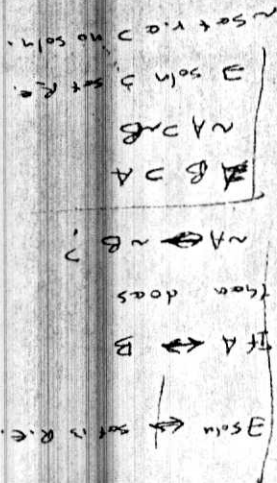 ∃ soln ↔ set is R.E.
If A ↔ B
than does
~A ↔ ~B ?
B ⊃ A
~A ⊃ ~B
∃ soln ⊃ set R.E.
~ set r.e ⊃ no soln.